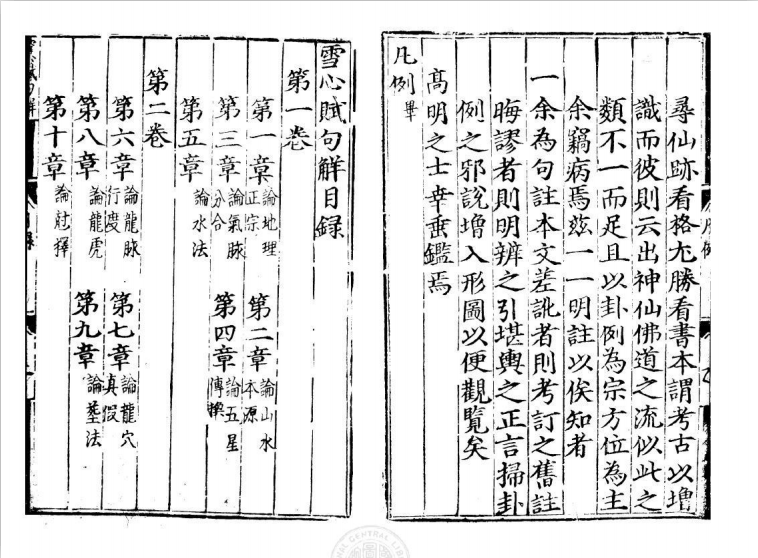 尋仙跡看格尢勝看書本謂考古以增
識而彼則云出神仙佛道之流似此之
類不一而足且以卦例為宗方位為主
余竊病焉茲一一明註以俟知者
一余為句註本文差訛者則考訂之舊註
晦謬者則明辨之引堪輿之正言掃卦
例之邪說增入形圖以便觀覽矣
高明之士幸垂鑑焉
凡例畢
雪心賦句解目録
第一卷
第一章 論地理正宗 第二章 論山水本源
第三章 論氣脉分合 第四章 論五星傳變
第五章 論水法
第二卷
第六章 論龍脉行度 第七章 論龍穴真假
第八章 論龍虎 第九章 論塟法
第十章
凡例